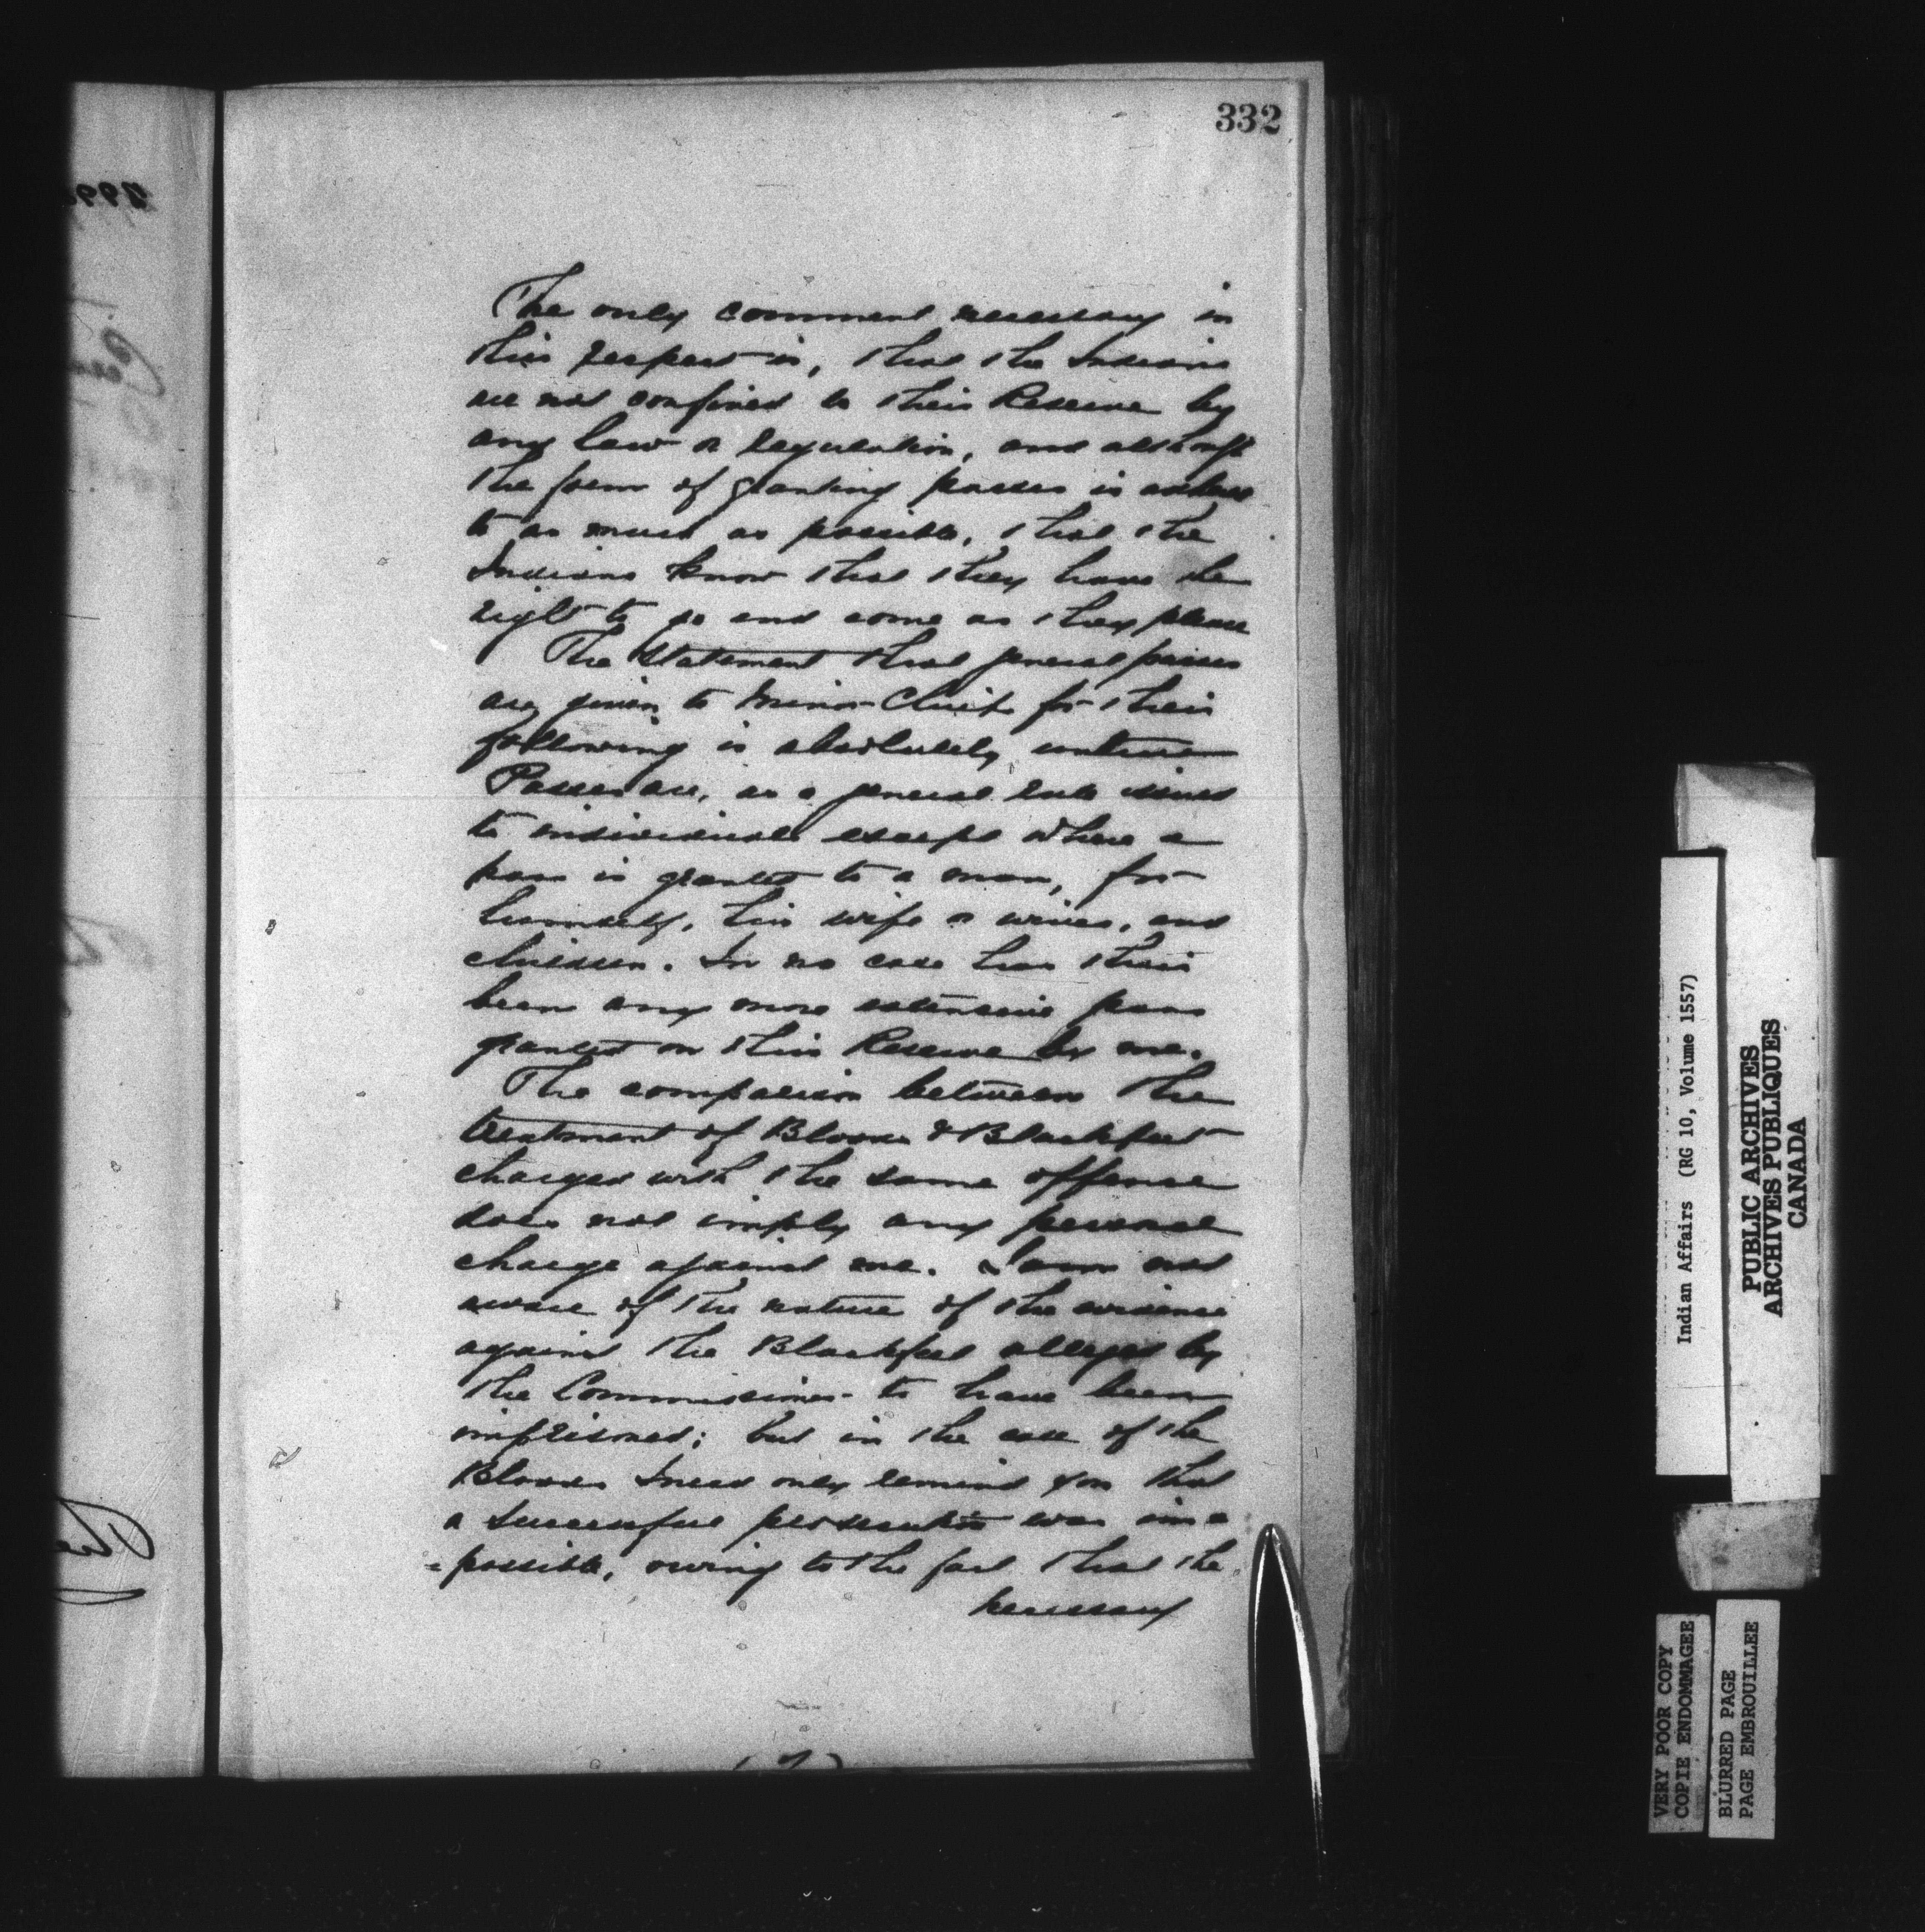 332
The only comment necessary in
this respect is, that the Indians
are not confined to their Reserve by
any law or regulation, and altho'
the form of granting passes is adhered
to as much as possible, that the
Indians know that they have the
right to go and come as they please
The statement that general passes
are given to Minor Chiefs for their
following is absolutely untrue
Passes are, as a general rule issued
to individuals except where a
pass is granted to a man, for
himself, his wife or wives, and
children. In no case has there
been any more extensive pass
granted on this Reserve by me.
The comparison between the
treatment of Bloods & Blackfeet
charged with the same offense
does not imply any personal
charge against me. I am not
aware of the nature of the evidence
against the Blackfeet alleged by
the Commissioner to have been
imprisoned; but in the case of the
Bloods I need only remind you that
a successful prosecution was im=
=possible, owing to the fact that the
necessary
Indian Affairs (RG 10, Volume 1557)
PUBLIC ARCHIVES
ARCHIVES PUBLIQUES
CANADA
VERY POOR COPY
COPIE ENDOMMAGEE
BLURRED PAGE
PAGE EMBROUILLEE